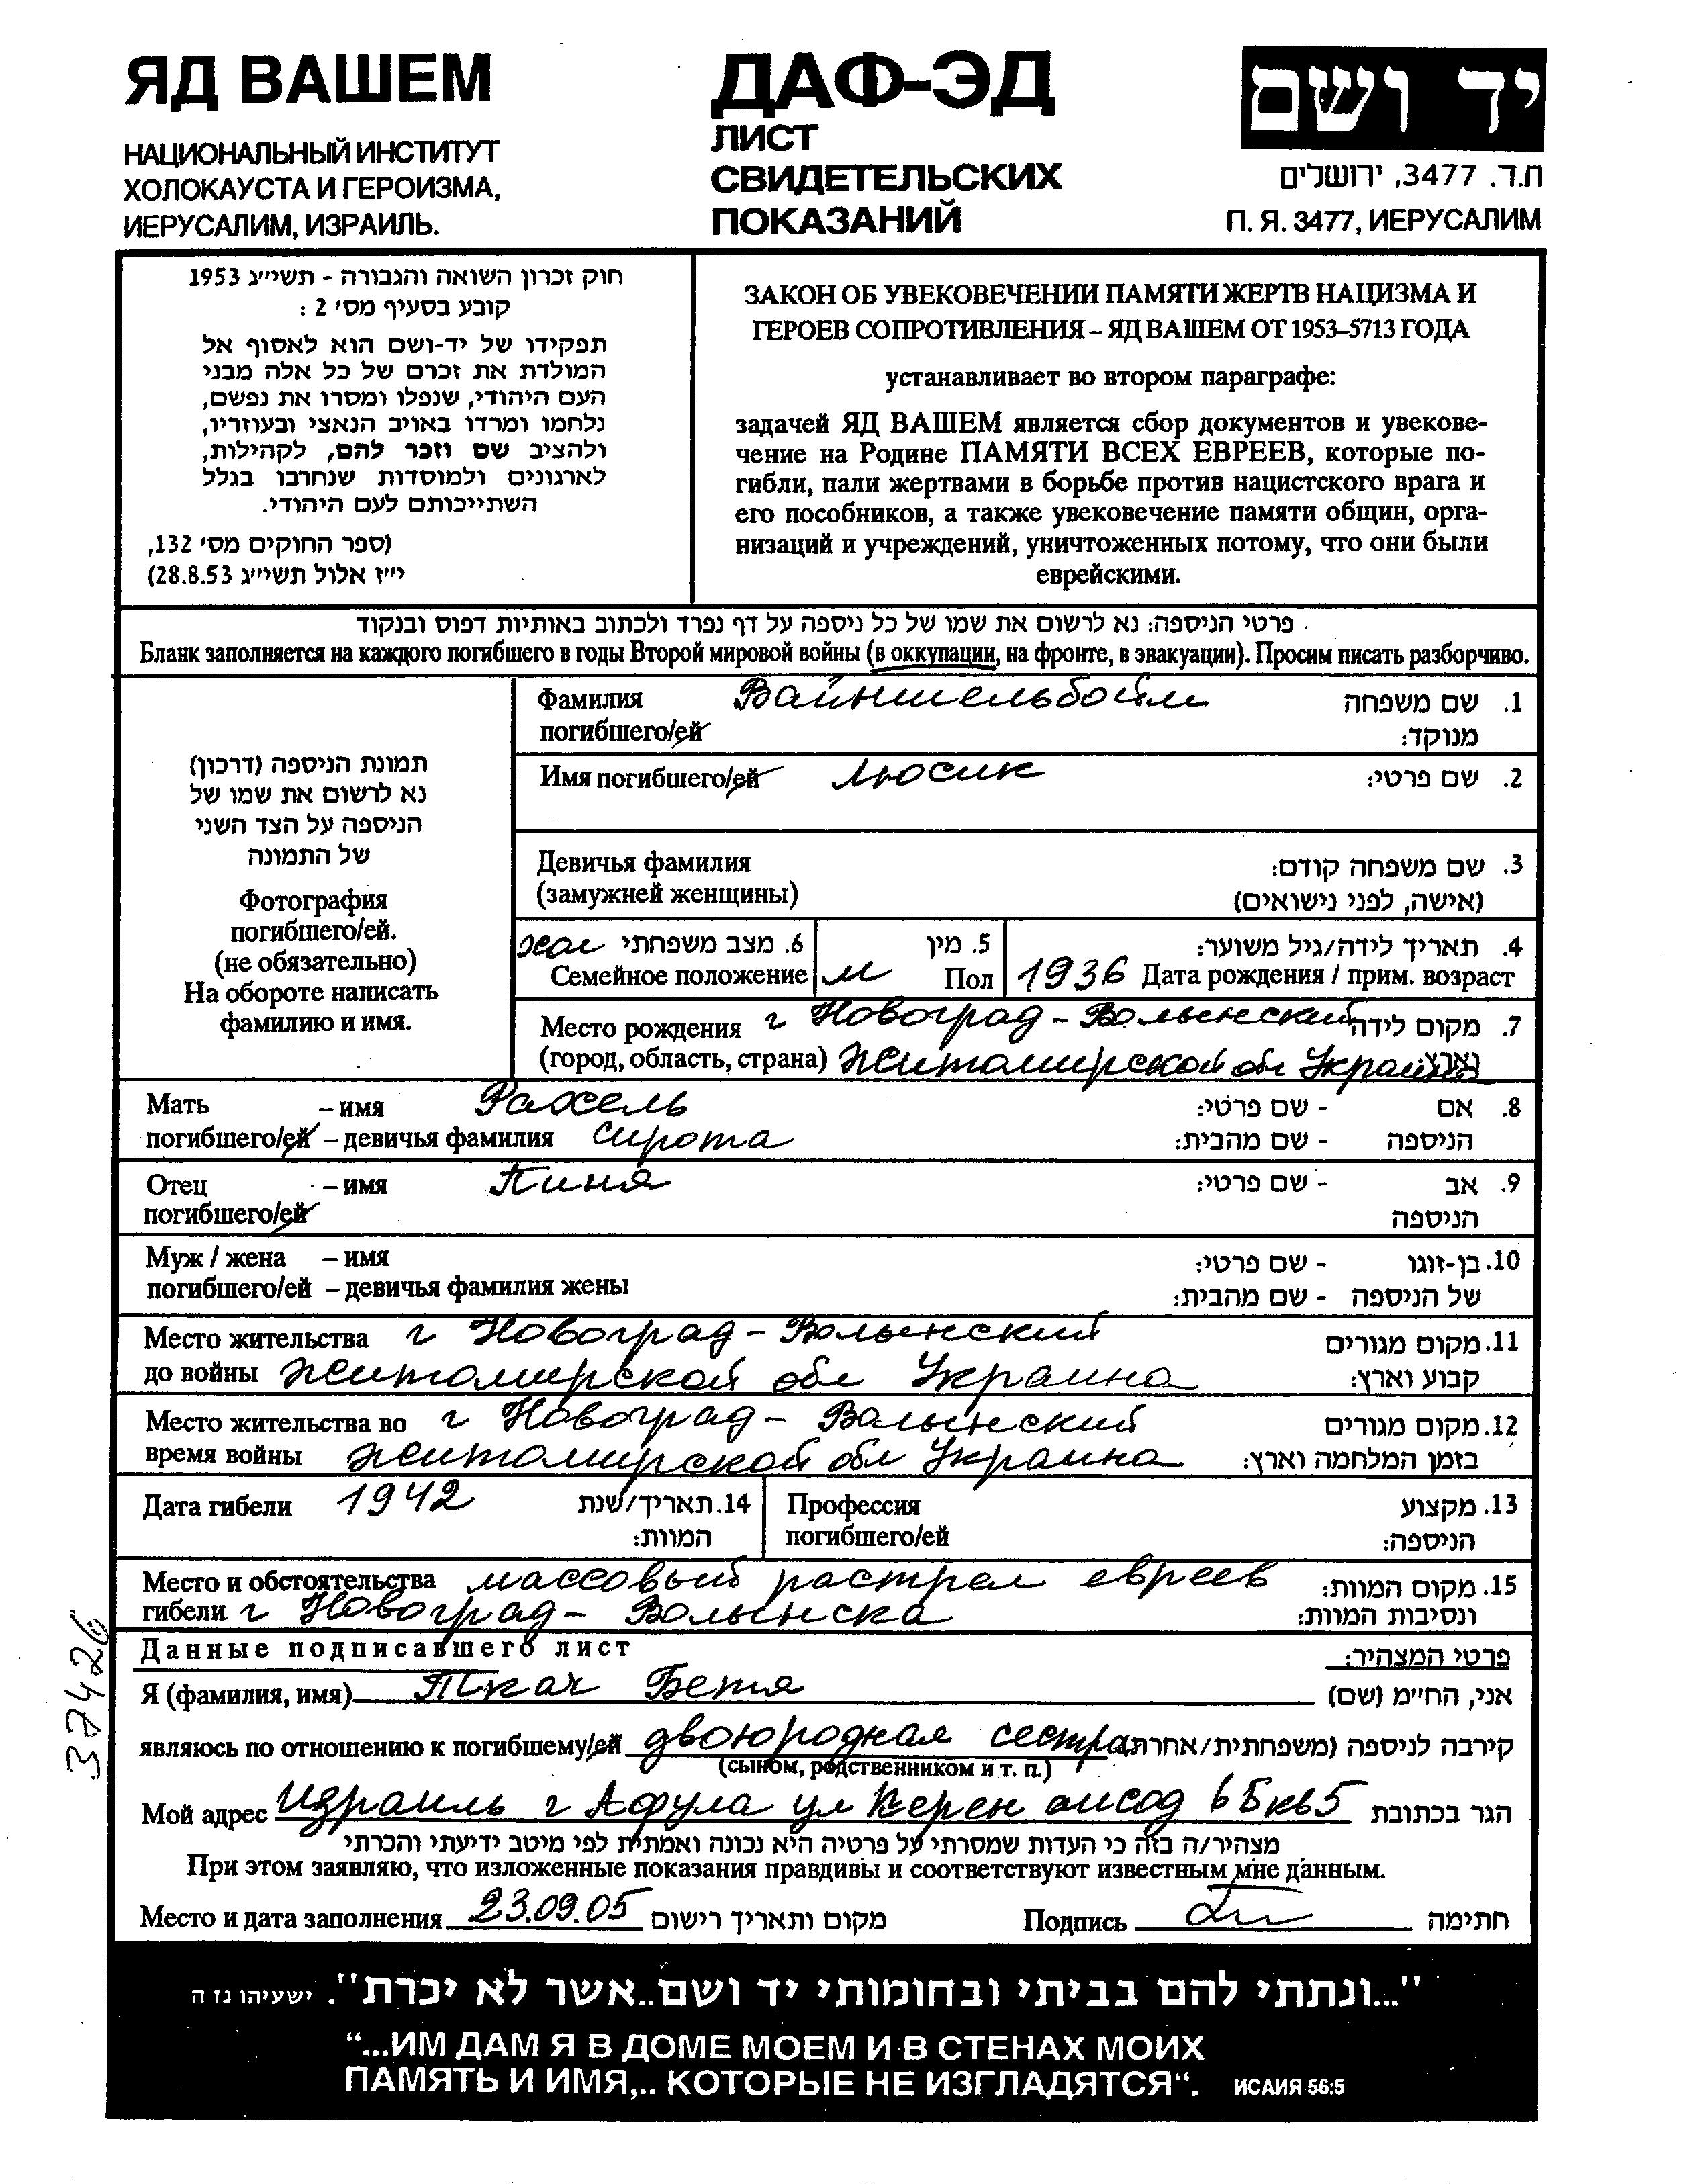 ЯД ВАШЕМ
НАЦИОНАЛЬНЫЙ ИНСТИТУТ
ХОЛОКАУСТА И ГЕРОИЗМА,
ИЕРУСАЛИМ, ИЗРАИЛЬ.
ДАФ-ЭД
ЛИСТ
СВИДЕТЕЛЬСКИХ
ПОКАЗАНИЙ
יד ושם
ת.ד. 3477, ירושלים
П. Я. 3477, ИЕРУСАЛИМ
חוק זכרון השואה והגבורה - תשי״ג 1953
קובע בסעיף מס׳ 2 :
תפקידו של יד-ושם הוא לאסוף אל
המולדת את זכרם של כל אלה מבני
העם היהודי, שנפלו ומסרו את נפשם,
נלחמו ומרדו באויב הנאצי ובעוזריו,
ולהציב שם וזכר להם, לקהילות,
לארגונים ולמוסדות שנחרבו בגלל
השתייכותם לעם היהודי.
(ספר החוקים מס׳ 132,
י״ז אלול תשי״ג 28.8.53)
ЗАКОН ОБ УВЕКОВЕЧЕНИИ ПАМЯТИ ЖЕРТВ НАЦИЗМА И
ГЕРОЕВ СОПРОТИВЛЕНИЯ – ЯД ВАШЕМ ОТ 1953–5713 ГОДА
устанавливает во втором параграфе:
задачей ЯД ВАШЕМ является сбор документов и увекове-
чение на Родине ПАМЯТИ ВСЕХ ЕВРЕЕВ, которые по-
гибли, пали жертвами в борьбе против нацистского врага и
его пособников, а также увековечение памяти общин, орга-
низаций и учреждений, уничтоженных потому, что они были
еврейскими.
פרטי הניספה: נא לרשום את שמו של כל ניספה על דף נפרד ולכתוב באותיות דפוס ובנקוד
Бланк заполняется на каждого погибшего в годы Второй мировой войны (в оккупации, на фронте, в эвакуации). Просим писать разборчиво.
תמונת הניספה (דרכון)
נא לרשום את שמו של
הניספה על הצד השני
של התמונה
Фотография
погибшего/ей.
(не обязательно)
На обороте написать
фамилию и имя.
Фамилия Вайншельбойм 1. שם משפחה
погибшего/ей מנוקד:
Имя погибшего/ей Люсик 2. שם פרטי:
Девичья фамилия 3. שם משפחה קודם:
(замужней женщины) (אישה, לפני נישואים)
хол 6. מצב משפחתי 5. מין 4. תאריך לידה/גיל משוער:
Семейное положение м Пол 1936 Дата рождения / прим. возраст
Место рождения г Новоград-Волынский 7. מקום לידה
(город, область, страна) Житомирской обл Украина וארץ:
Мать – имя Рахель 8. אם - שם פרטי:
погибшего/ей – девичья фамилия Сирота הניספה - שם מהבית:
Отец – имя Пиня 9. אב - שם פרטי:
погибшего/ей הניספה
Муж / жена – имя 10. בן-זוגו - שם פרטי:
погибшего/ей – девичья фамилия жены של הניספה - שם מהבית:
Место жительства г Новоград-Волынский 11. מקום מגורים
до войны Житомирской обл Украина קבוע וארץ:
Место жительства во г Новоград-Волынский 12. מקום מגורים
время войны Житомирской обл Украина בזמן המלחמה וארץ:
Дата гибели 1942 14. תאריך/שנת Профессия 13. מקצוע
המוות: погибшего/ей הניספה:
Место и обстоятельства массовый растрел евреев 15. מקום המוות:
гибели г Новоград-Волынска ונסיבות המוות:
Данные подписавшего лист פרטי המצהיר:
Я (фамилия, имя) Ткач Бетя אני, הח״מ (שם)
являюсь по отношению к погибшему/ей двоюродная сестра קירבה לניספה (משפחתית/אחרת)
(сыном, родственником и т. п.)
Мой адрес Израиль г Афула ул Керен аисод 6 Б кв 5 הגר בכתובת
מצהיר/ה בזה כי העדות שמסרתי על פרטיה היא נכונה ואמתית לפי מיטב ידיעתי והכרתי
При этом заявляю, что изложенные показания правдивы и соответствуют известным мне данным.
Место и дата заполнения 23.09.05 מקום ותאריך רישום Подпись חתימה
37426
"...ונתתי להם בביתי ובחומותי יד ושם..אשר לא יכרת". ישעיהו נז ה
“...ИМ ДАМ Я В ДОМЕ МОЕМ И В СТЕНАХ МОИХ
ПАМЯТЬ И ИМЯ,.. КОТОРЫЕ НЕ ИЗГЛАДЯТСЯ“. ИСАИЯ 56:5